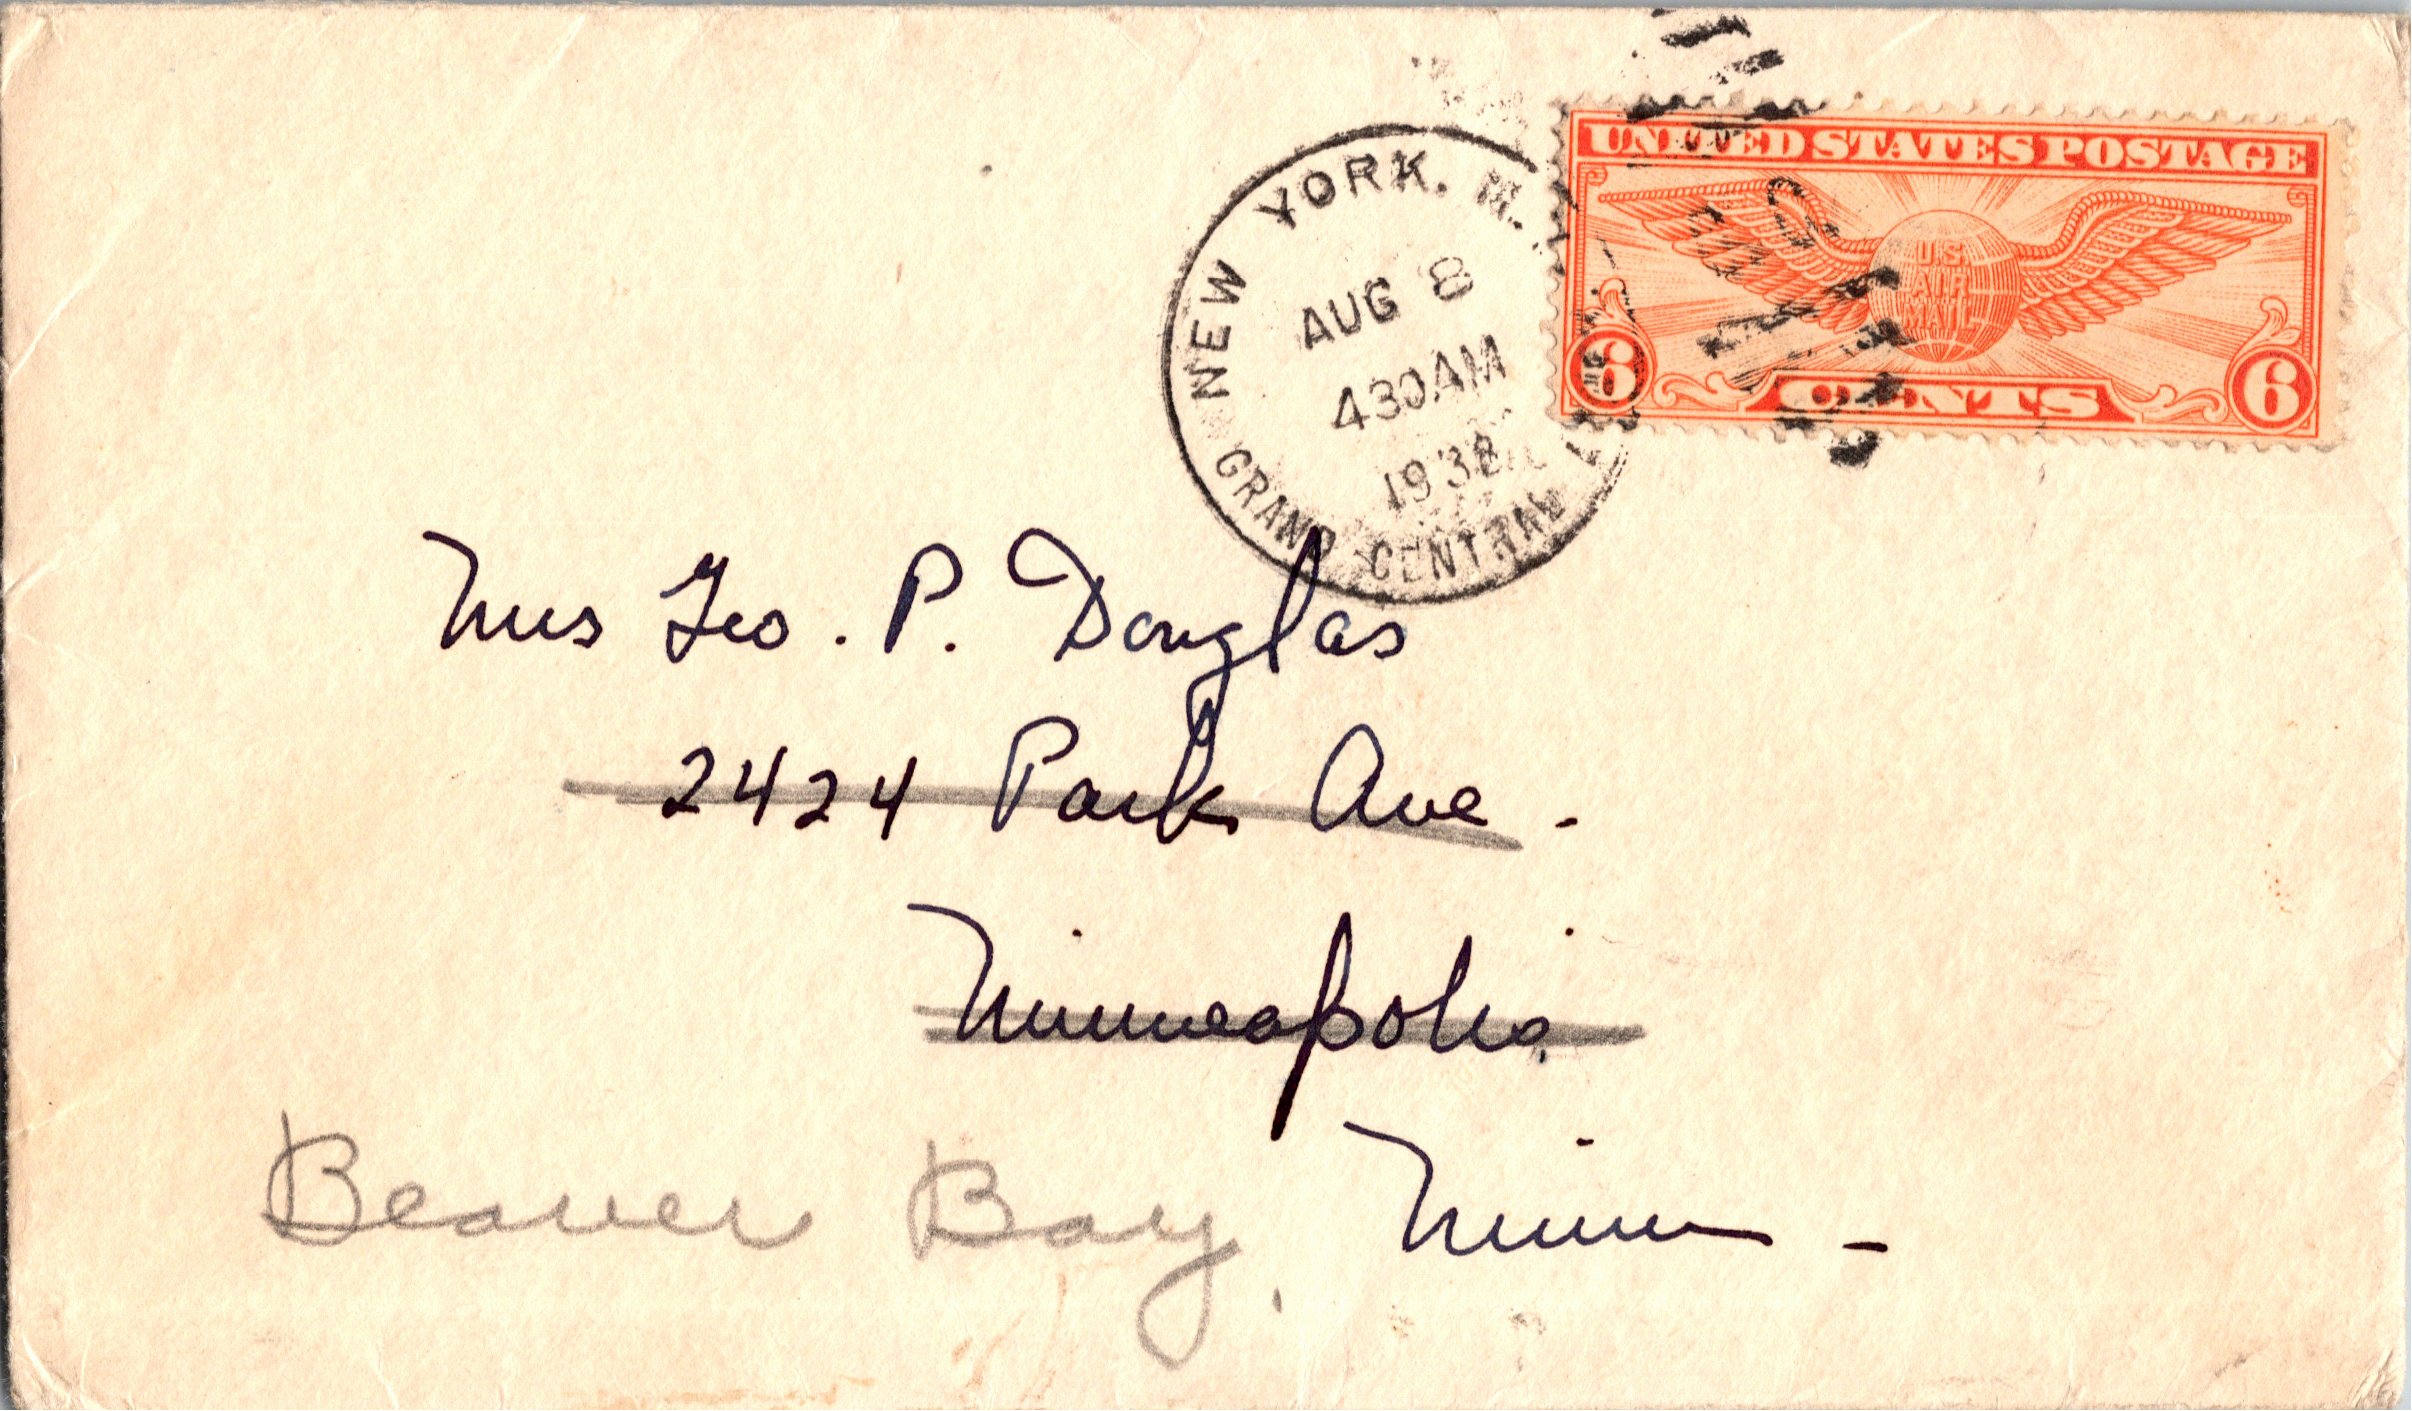 UNITED STATES POSTAGE
U.S.
AIR
MAIL
6 CENTS 6
NEW YORK, N.
AUG 8
430 AM
1938
GRAND CENTRAL
Mrs Geo. P. Douglas
2424 Park Ave.
Minneapolis
Beaver Bay, Minn -